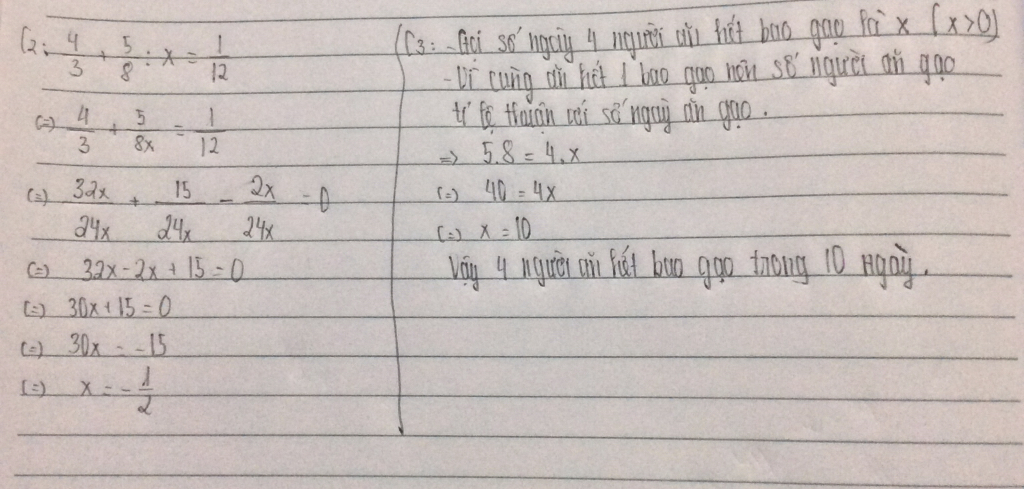 C2: 4/3 + 5/8 : x = 1/12
(=) 4/3 + 5/8x = 1/12
(=) 32x/24x + 15/24x - 2x/24x = 0
(=) 32x - 2x + 15 = 0
(=) 30x + 15 = 0
(=) 30x = -15
(=) x = - 1/2
C3: - Gọi số ngày 4 người ăn hết bao gạo là x (x>0)
- Vì cùng ăn hết 1 bao gạo nên số người ăn gạo
tỉ lệ thuận với số ngày ăn gạo.
=> 5.8 = 4.x
(=) 40 = 4x
(=) x = 10
Vậy 4 người ăn hết bao gạo trong 10 ngày.